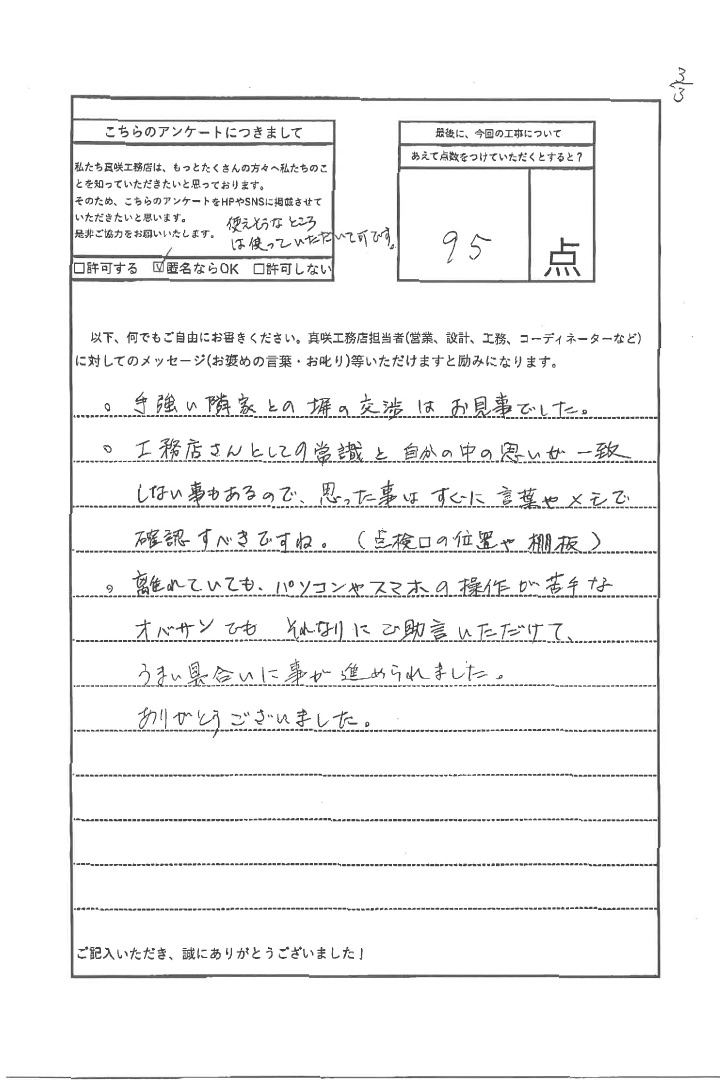 3/3
こちらのアンケートにつきまして
私たち真咲工務店は、もっとたくさんの方々へ私たちのこ
とを知っていただきたいと思っております。
そのため、こちらのアンケートをHPやSNSに掲載させて
いただきたいと思います。
是非ご協力をお願いいたします。
使えそうなところ
は使っていただいて可です。
□許可する ☑匿名ならOK □許可しない
最後に、今回の工事について
あえて点数をつけていただくとすると？
95 点
以下、何でもご自由にお書きください。真咲工務店担当者(営業、設計、工務、コーディネーターなど)
に対してのメッセージ(お褒めの言葉・お叱り)等いただけますと励みになります。
。手強い隣家との塀の交渉はお見事でした。
。工務店さんとしての常識と自分の中の思いが一致
しない事もあるので、思った事はすぐに言葉やメモで
確認すべきですね。（点検口の位置や棚板）
。離れていても、パソコンやスマホの操作が苦手な
オバサンでもそれなりにご助言いただけて、
うまい具合いに事が進められました。
ありがとうございました。
ご記入いただき、誠にありがとうございました！